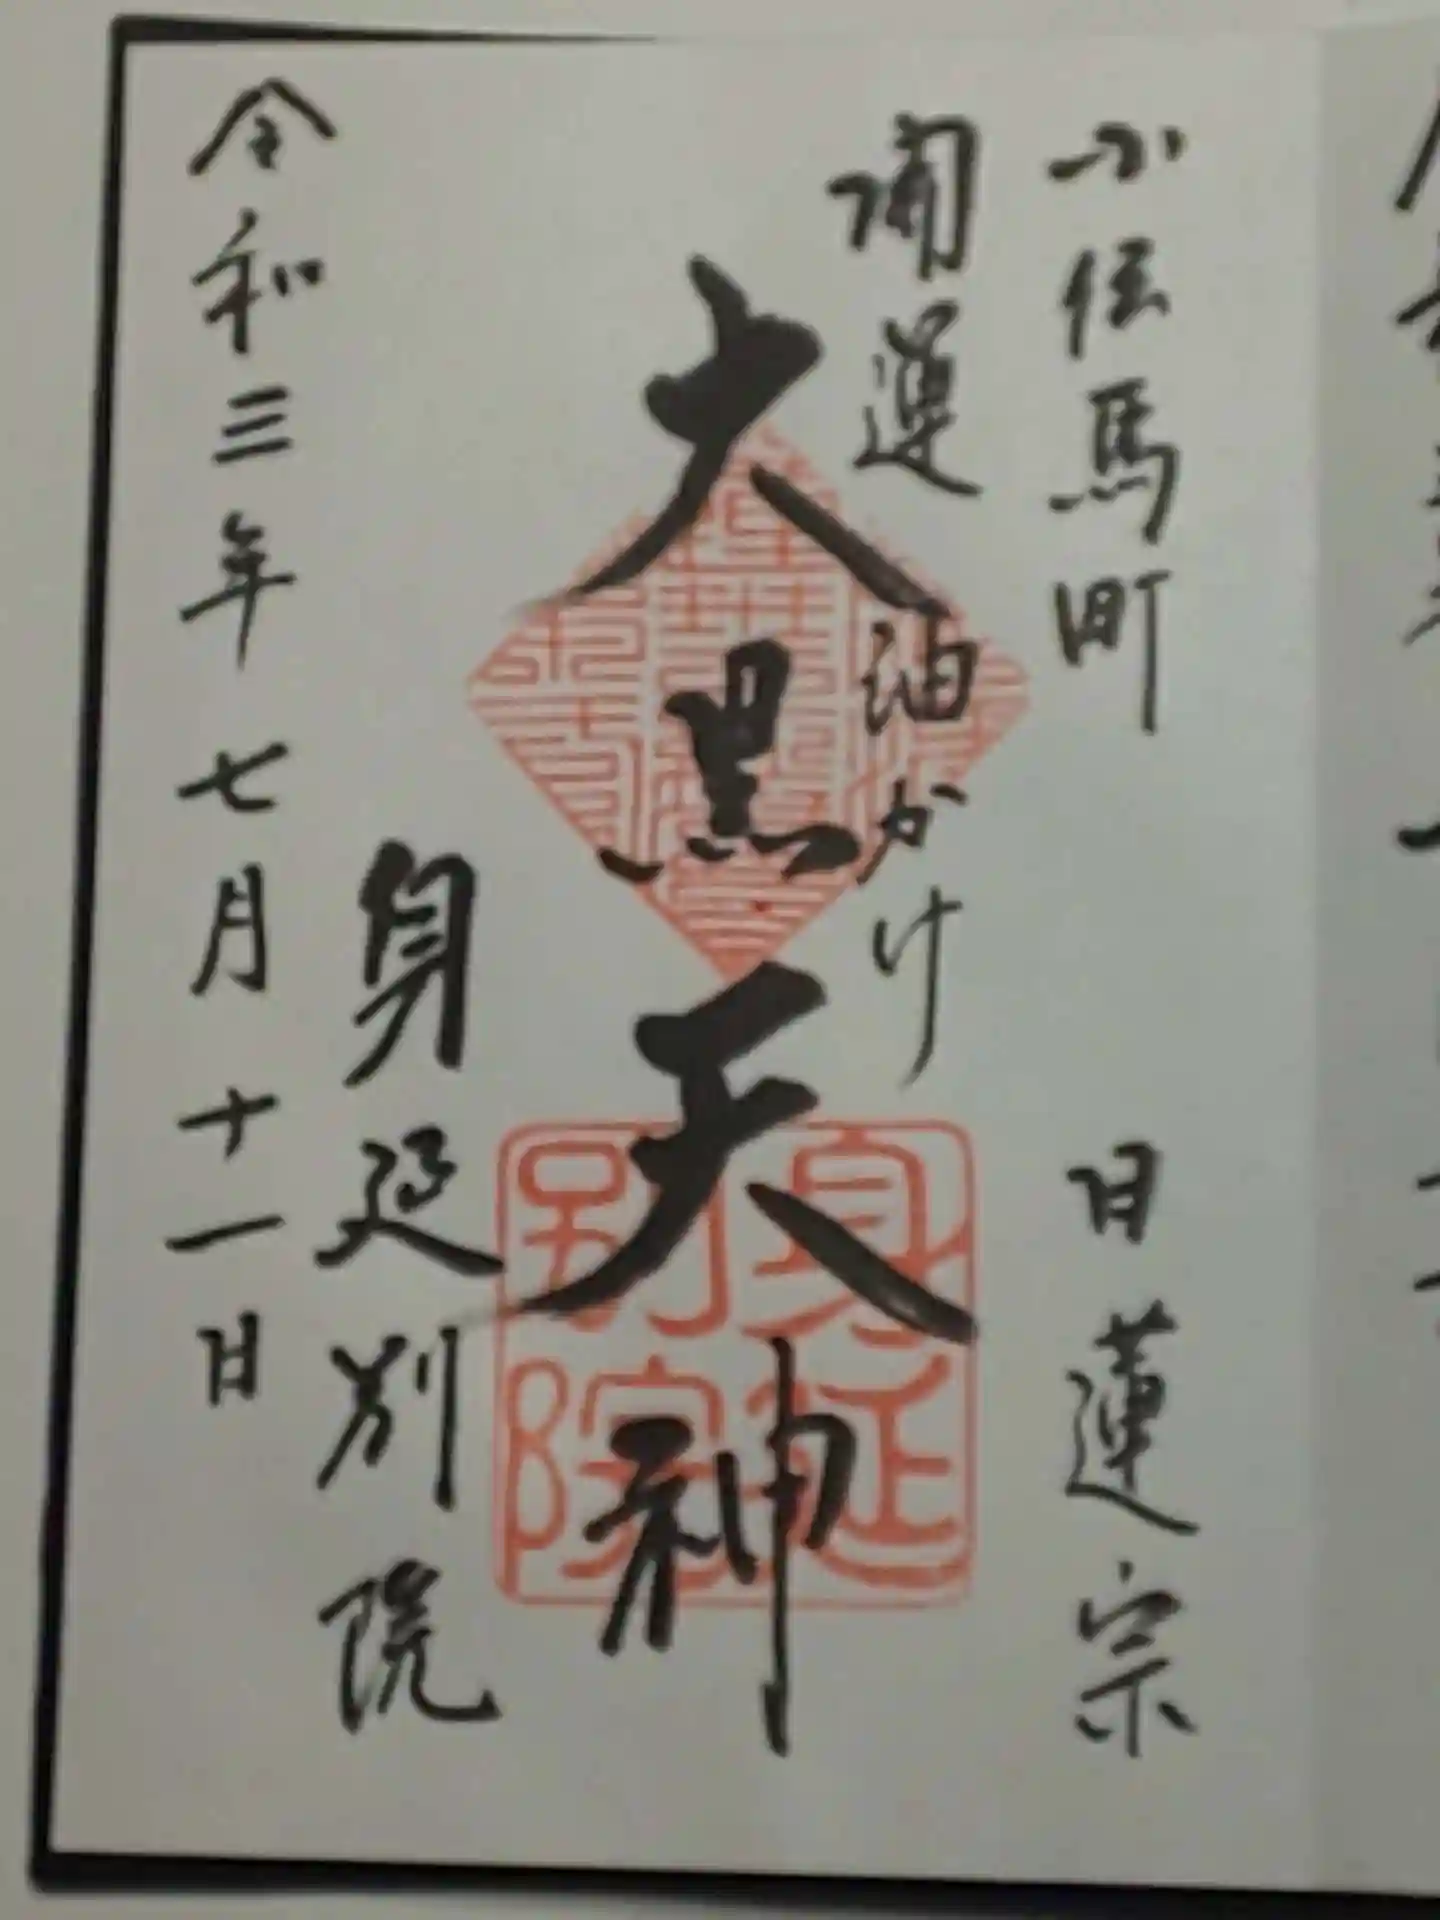 小伝馬町 日蓮宗
開運 油かけ
大黒天神
身延別院
令和三年七月十一日
身延別院